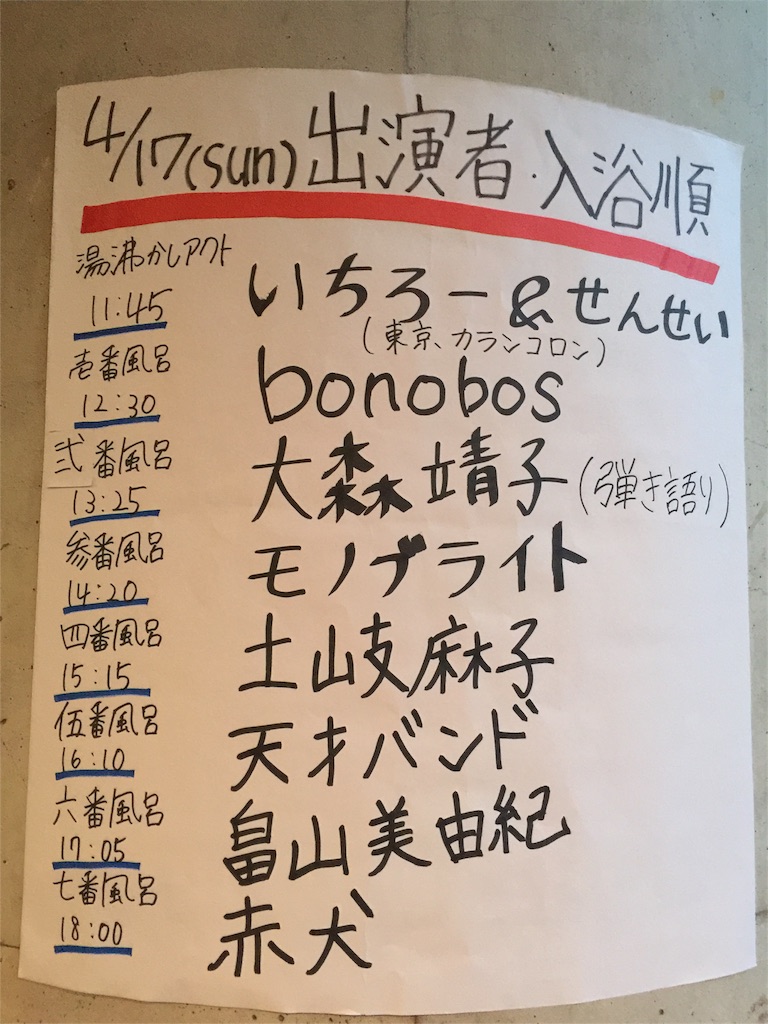 4/17(sun)出演者・入浴順
湯沸かしアクト
11:45
いちろー&せんせい
(東京、カランコロン)
壱番風呂
12:30
bonobos
弐番風呂
13:25
大森靖子(弾き語り)
参番風呂
14:20
モノブライト
四番風呂
15:15
土岐麻子
伍番風呂
16:10
天才バンド
六番風呂
17:05
畠山美由紀
七番風呂
18:00
赤犬